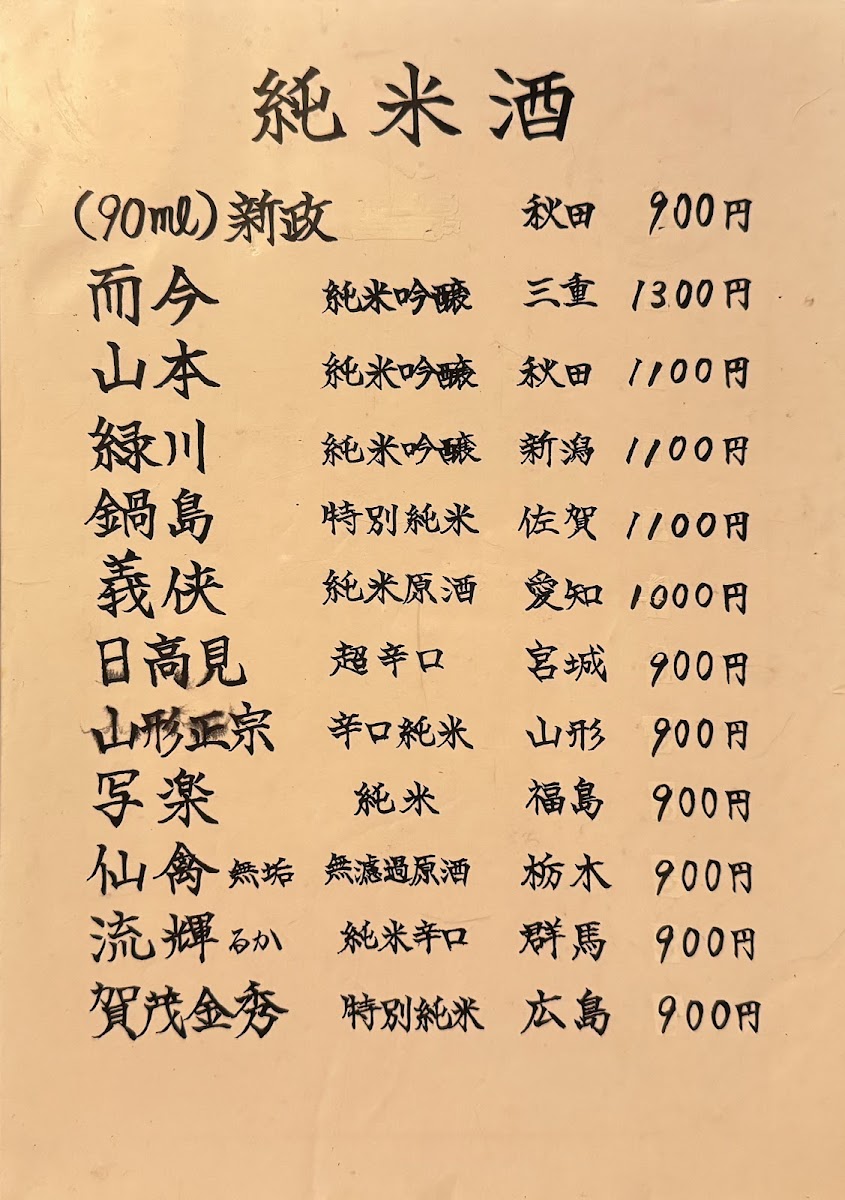 純米酒
(90ml)新政 秋田 900円
而今 純米吟醸 三重 1300円
山本 純米吟醸 秋田 1100円
緑川 純米吟醸 新潟 1100円
鍋島 特別純米 佐賀 1100円
義侠 純米原酒 愛知 1000円
日高見 超辛口 宮城 900円
山形正宗 辛口純米 山形 900円
写楽 純米 福島 900円
仙禽 無垢 無濾過原酒 栃木 900円
流輝 るか 純米辛口 群馬 900円
賀茂金秀 特別純米 広島 900円